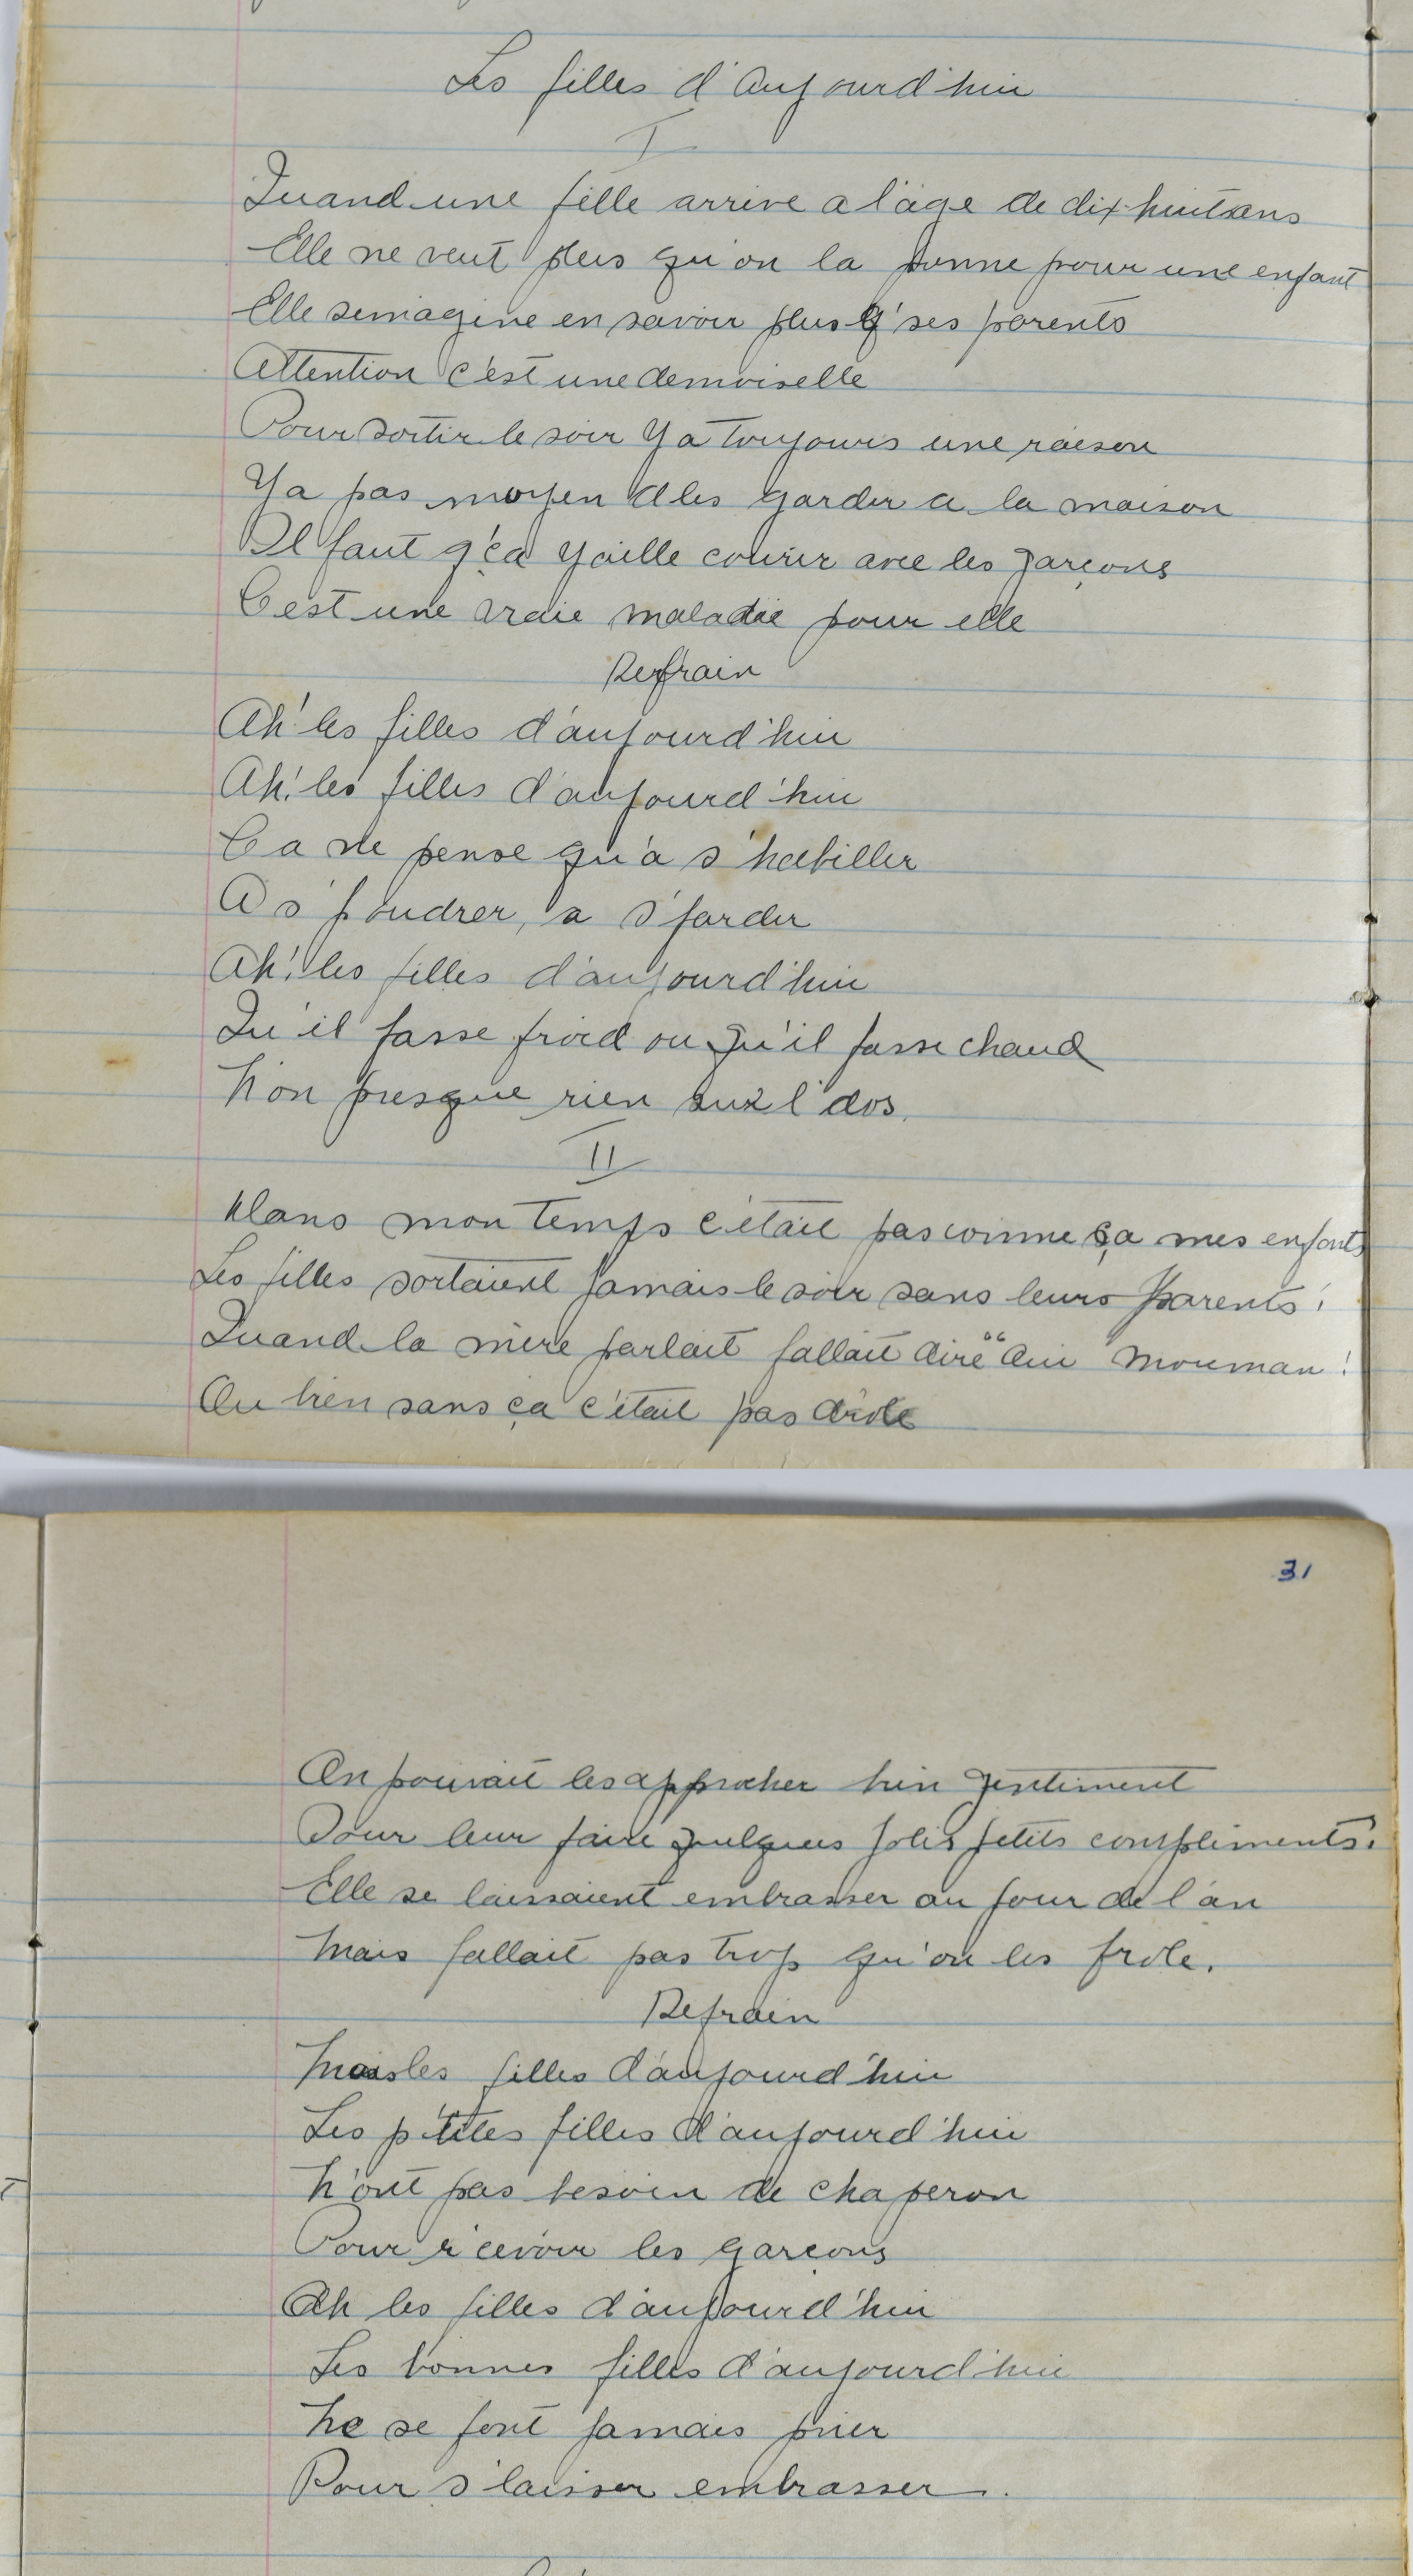 Les filles d'Aujourd'hui
I
Quand une fille arrive a l'âge de dix-huit ans
Elle ne veut plus qu'on la donne pour une enfant
Elle s'imagine en savoir plus q' ses parents
Attention c'est une demoiselle
Pour sortir le soir Y a toujours une raison
Y a pas moyen d'les garder a la maison
Il faut q' ça y aille courir avec les garçons
C'est une vraie maladie pour elle
Refrain
Ah' les filles d'aujourd'hui
Ah! les filles d'aujourd'hui
Ca ne pense qu'a s'habiller
A s' poudrer, a s'farder
Ah! les filles d'aujourd'hui
Qu'il fasse froid ou qu'il fasse chaud
N'on presque rien sur l'dos.
II
Dans mon temps c'était pas comme ça mes enfants
Les filles sortaient jamais le soir sans leurs parents!
Quand la mère parlait fallait dire "Oui Mouman!
Ou bien sans ça c'était pas drôle
31
On pouvait les approcher bien gentiment
Pour leur faire quelques jolis petits compliments.
Elle se laissaient embrasser au jour de l'an
Mais fallait pas trop qu'on les frole.
Refrain
Mais les filles d'aujourd'hui
Les p'tites filles d'aujourd'hui
N'ont pas besoin de chaperon
Pour r'cevoir les garçons
Ah les filles d'aujourd'hui
Les bonnes filles d'aujourd'hui
Ne se font jamais prier
Pour s'laisser embrasser.